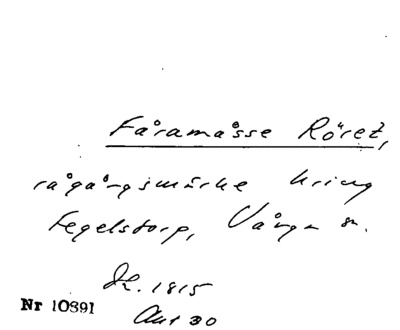 Fåramåsse Röret,
rågångsmärke kring
Tegelstorp, Vånga sn.
Lk. 1815
Akt 30
Nr 10891